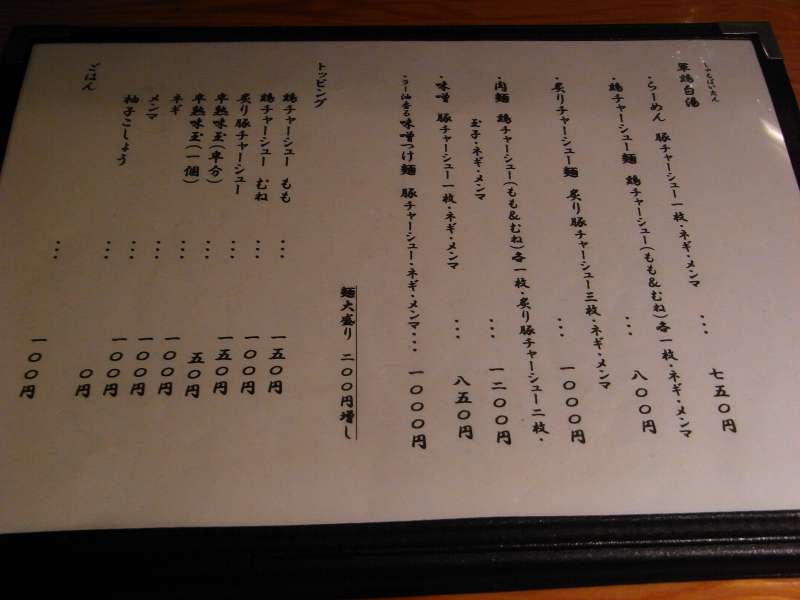 しゃもぱいたん
軍鶏白湯
・らーめん 豚チャーシュー一枚・ネギ・メンマ … 七五〇円
・鶏チャーシュー麺 鶏チャーシュー(もも&むね)各一枚・ネギ・メンマ … 八〇〇円
・炙りチャーシュー麺 炙り豚チャーシュー三枚・ネギ・メンマ … 一〇〇〇円
・肉麺 鶏チャーシュー(もも&むね)各一枚・炙り豚チャーシュー二枚・
玉子・ネギ・メンマ … 一二〇〇円
・味噌 豚チャーシュー一枚・ネギ・メンマ … 八五〇円
・ラー油香る味噌つけ麺 豚チャーシュー・ネギ・メンマ… 一〇〇〇円
麺大盛り 二〇〇円増し
トッピング
鶏チャーシュー もも … 一五〇円
鶏チャーシュー むね … 一〇〇円
炙り豚チャーシュー … 一五〇円
半熟味玉(半分) … 五〇円
半熟味玉(一個) … 一〇〇円
ネギ … 一〇〇円
メンマ … 一〇〇円
柚子こしょう … 〇円
ごはん … 一〇〇円